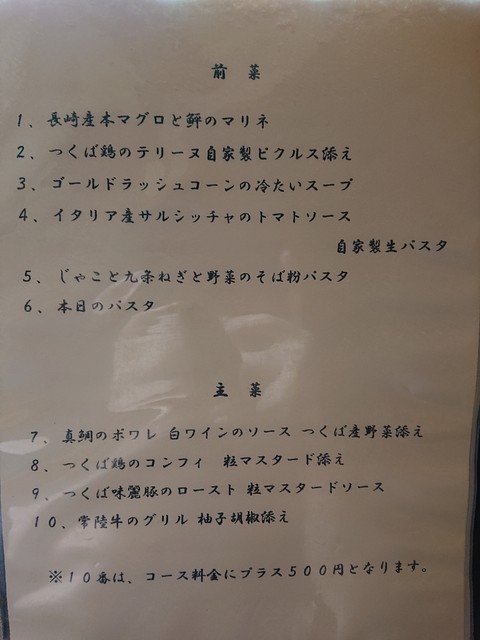 前 菜
1、長崎産本マグロと鮃のマリネ
2、つくば鶏のテリーヌ自家製ピクルス添え
3、ゴールドラッシュコーンの冷たいスープ
4、イタリア産サルシッチャのトマトソース
自家製生パスタ
5、じゃこと九条ねぎと野菜のそば粉パスタ
6、本日のパスタ
主 菜
7、真鯛のポワレ 白ワインのソース つくば産野菜添え
8、つくば鶏のコンフィ 粒マスタード添え
9、つくば味麗豚のロースト 粒マスタードソース
10、常陸牛のグリル 柚子胡椒添え
※10番は、コース料金にプラス500円となります。